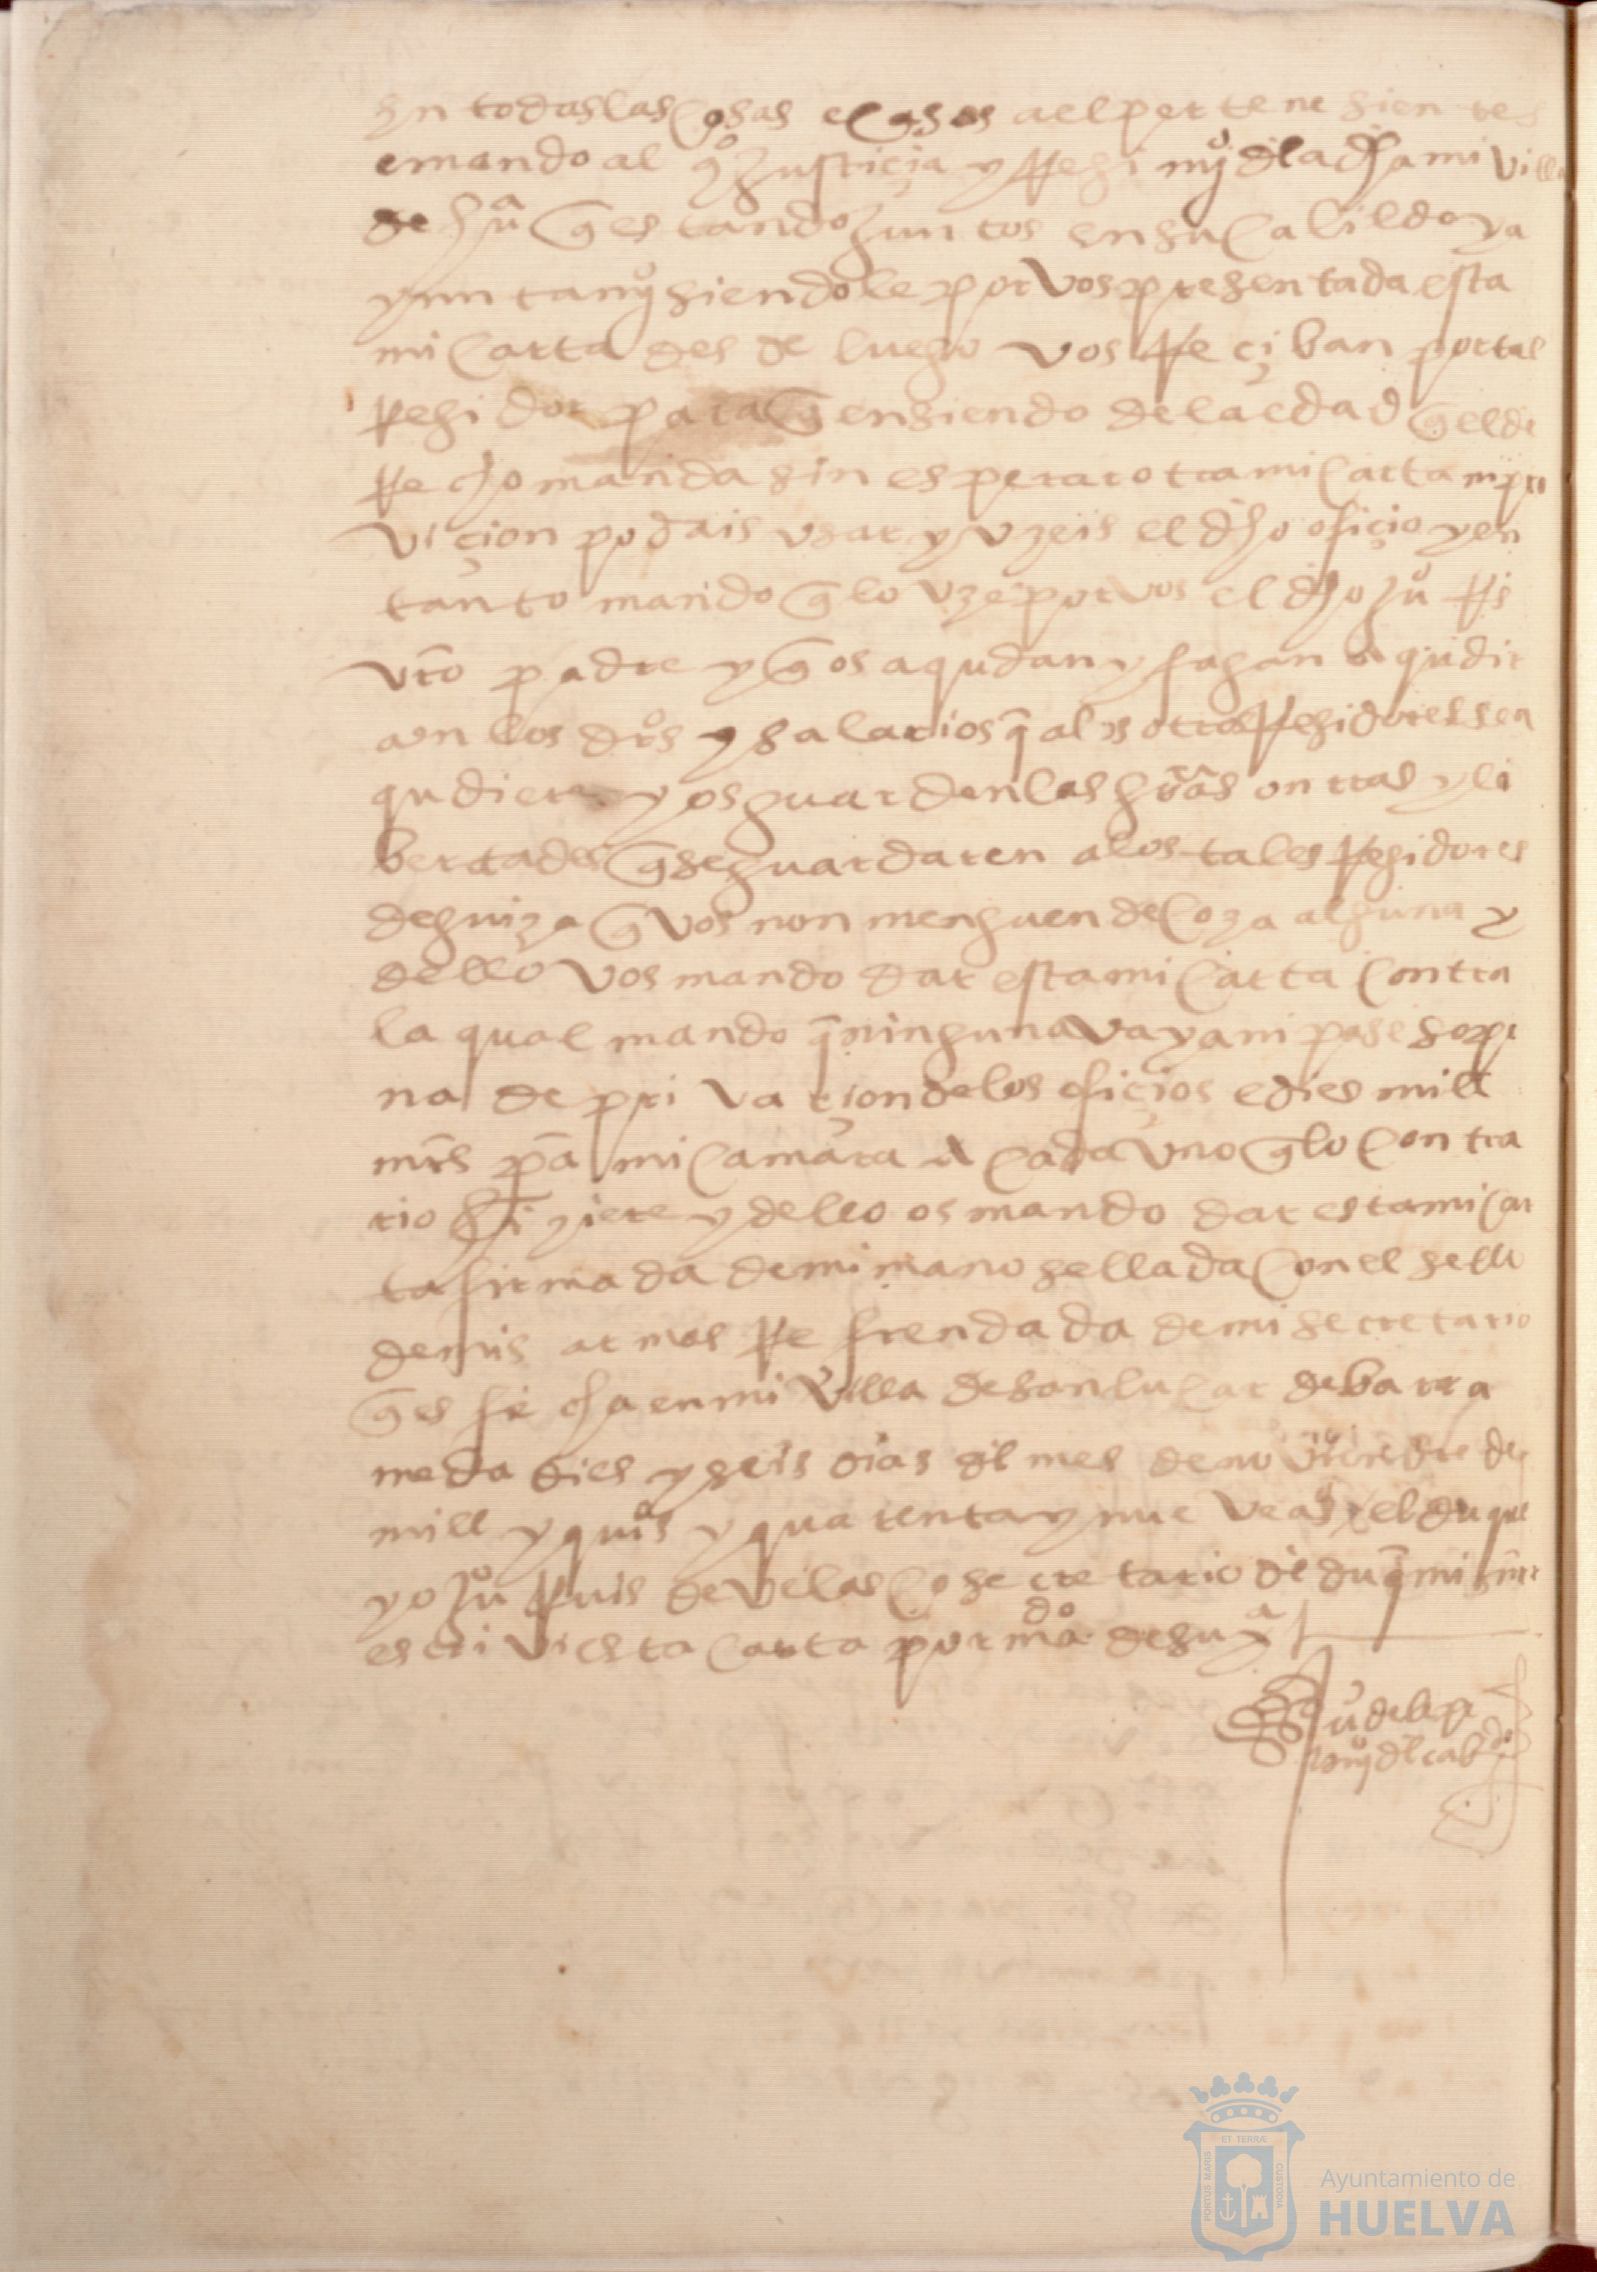 en todas las cosas e casos a el pertenesientes
e mando al qº justiçia y rregimiº dla dha mi villa
de huª q estando juntos en su cabildo y a
yuntamyº siendole por vos presentada esta
mi carta desde luego vos rreçiban por tal
rregidor para q en siendo de la edad q el de
rrecho manda sin esperar otra mi carta ni pro
viçion podais usar y uzeis el dho ofiçio y en
tanto mando q lo uze por vos el dho juº rrs
vro padre y q os aqudan y fagan aqudir
con los drºs y salarios q a los otros rregidores se a
qudiere y os guarden las graªs onrras y li
bertades q se guardaren a los tales rregidores
de guiza q vos non menguen de coza alguna y
dello vos mando dar esta mi carta contra
la qual mando q ninguna vaya ni pase so pe
na de privaçion de los ofiçios e dies mill
mrs pa mi camara a cada uno q lo contra
rio hiziere y dello os mando dar esta mi car
ta firmada de mi mano sellada con el sello
de mis armas rrefrendada de mi secretario
q es fecha en mi villa de sanlucar de barra
meda dies y seis dias dl mes de de
mill y quiºs y quarenta y nueve aºs el duque
yo juº rruis de velasco secretario del duq mi sr
escrivi esta carta por mdº de su sª
juº de lepe
 dl cabdº
Ayuntamiento de
HUELVA
PORTUS MARIS
ET TERRÆ
CUSTODIA